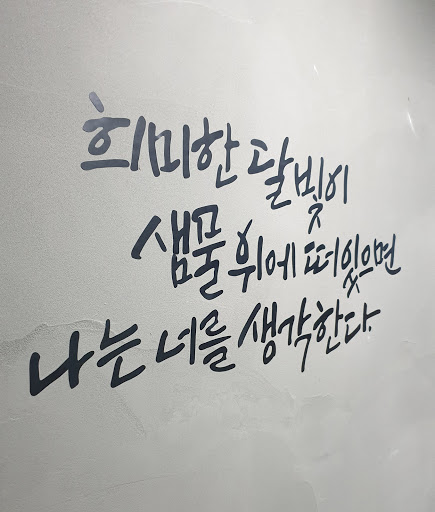 희미한 달빛이
샘물 위에 떠있으면
나는 너를 생각한다.